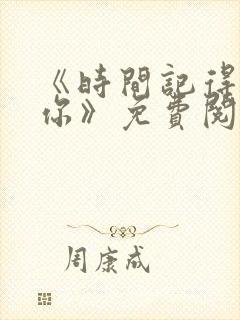 《時間記得
你》免費閱
周康成